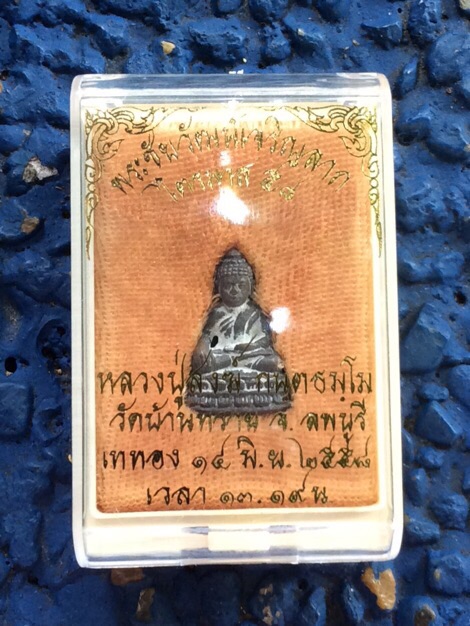 พระชัยวัฒน์เจริญลาภ
ไตรมาส ๕๘
หลวงปู่ กนฺตธมฺโม
จ. ลพบุรี
เททอง ๑๔ พ.ย. ๒๕๕๘
เวลา ๑๓.๑๙ น